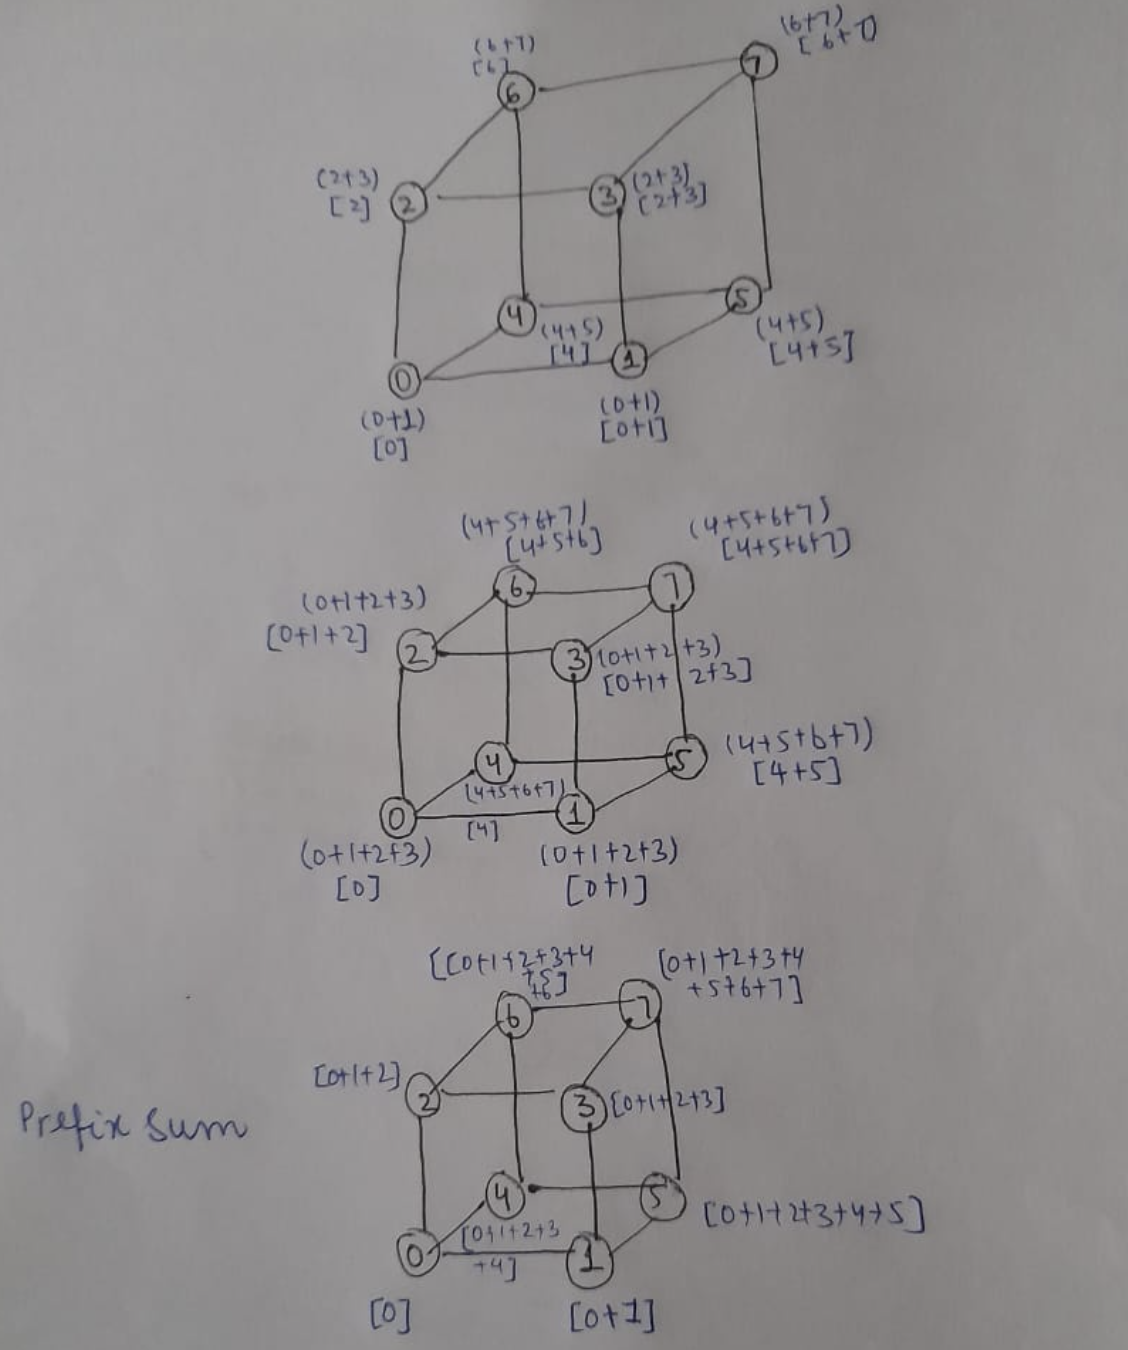 (6+7)
[6+7]
(6+7)
[6]
7
6
(2+3)
[2]
2
3
(2+3)
[2+3]
4
(4+5)
[4]
5
(4+5)
[4+5]
0
(0+1)
[0]
1
(0+1)
[0+1]
(4+5+6+7)
[4+5+6]
(4+5+6+7)
[4+5+6+7]
6
7
(0+1+2+3)
[0+1+2]
2
3
(0+1+2+3)
[0+1+2+3]
4
(4+5+6+7)
[4]
5
(4+5+6+7)
[4+5]
0
(0+1+2+3)
[0]
1
(0+1+2+3)
[0+1]
[[0+1+2+3+4
+5
+6]
[0+1+2+3+4
+5+6+7]
6
7
[0+1+2]
2
3
[0+1+2+3]
Prefix Sum
4
[0+1+2+3
+4]
5
[0+1+2+3+4+5]
0
[0]
1
[0+1]